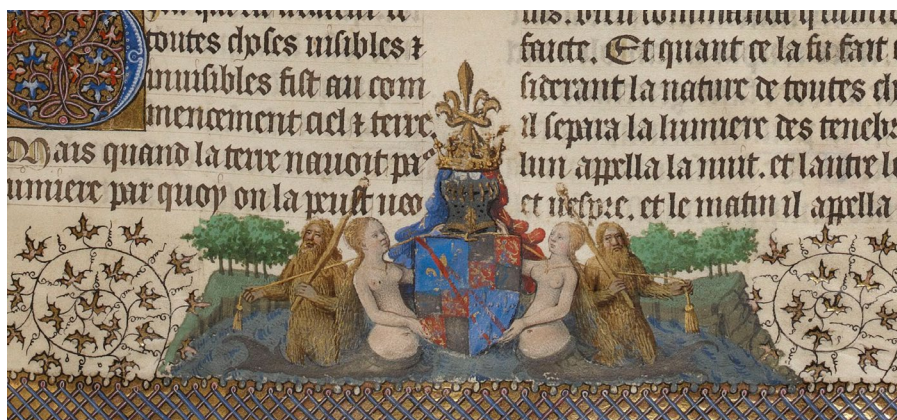 toutes choses uisibles ⁊
inuisibles fist au com
mencement ciel ⁊ terre.
Mais quand la terre nauoit pas
lumiere par quoy on la peust ueo
bien commanda
faicte. Et quant ce la fu fait
siderant la nature de toutes ch
il separa la lumiere des tenebr
lun appella la nuit. et lautre le
et uespre. et le matin il appella